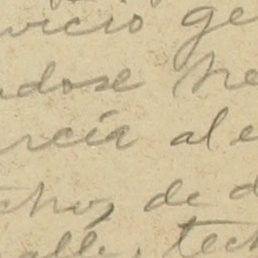 vicio ge
ndose he
rcía al e
chos de d
alle, tech